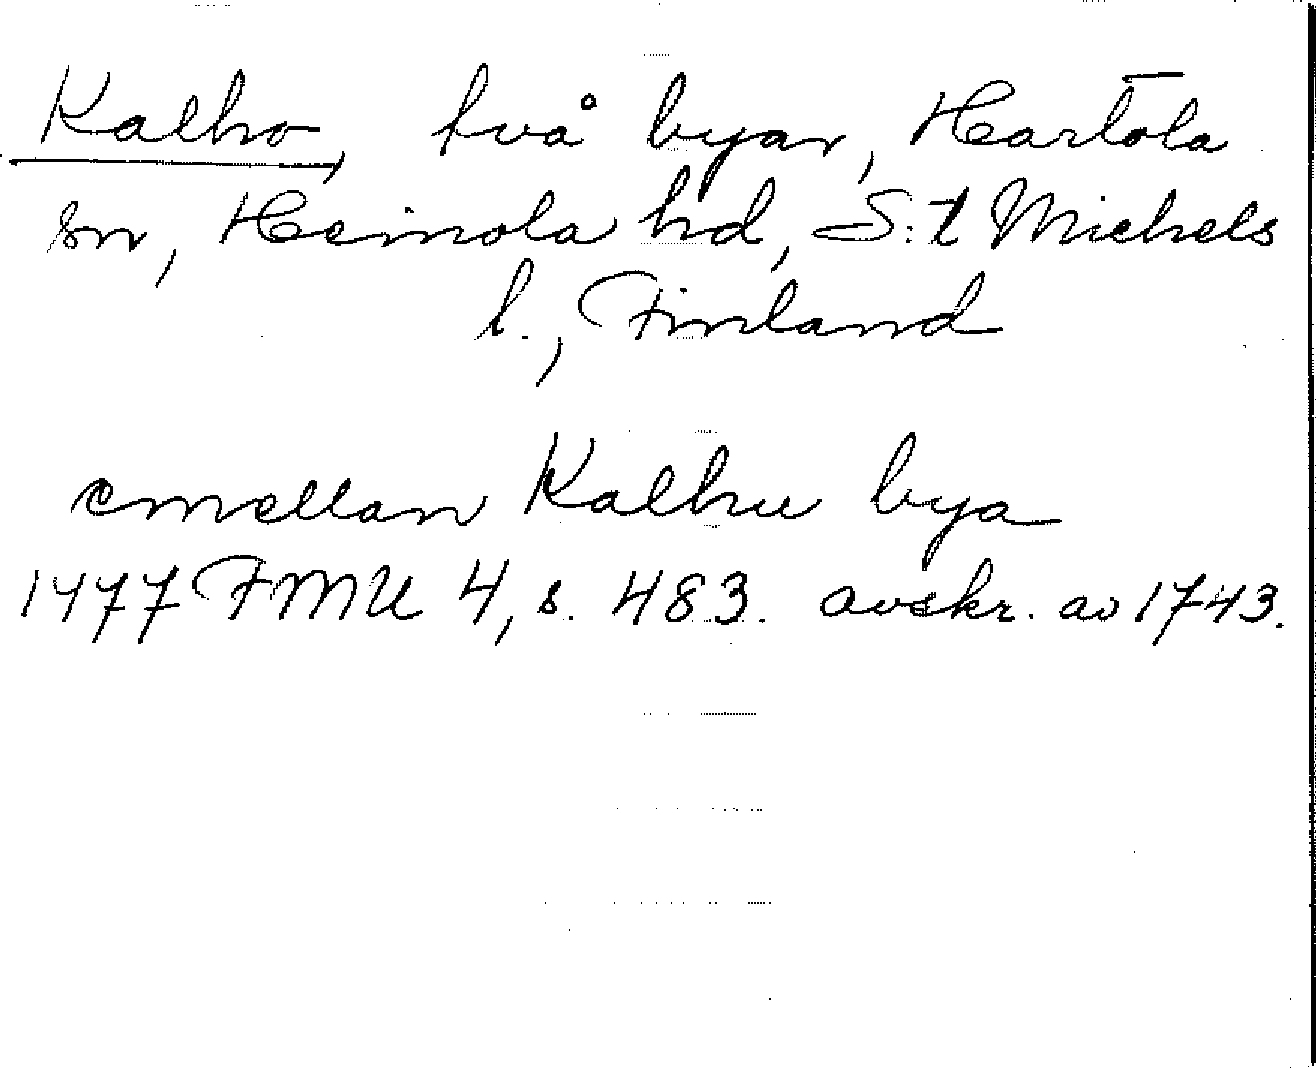 Kalho, två byar, Hartola
sn, Heinola hd, S:t Michels
l., Finland
emellan Kalhu bya
1477 FMU 4, s. 483. avskr. av 1743.